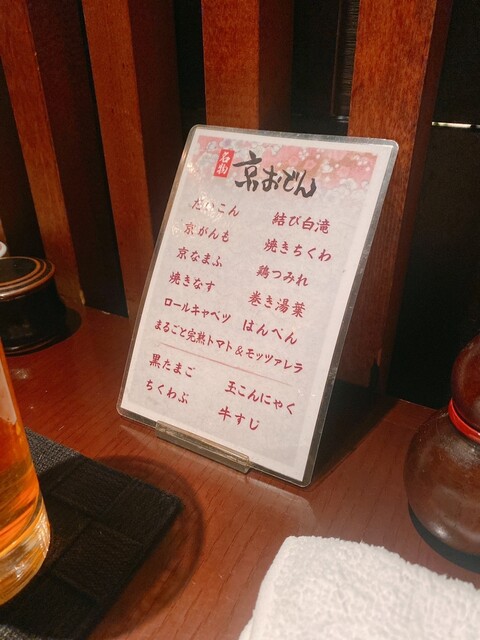 名物
京おでん
だいこん
京がんも
京なまふ
焼きなす
ロールキャベツ
結び白滝
焼きちくわ
鶏つみれ
巻き湯葉
はんぺん
まるごと完熟トマト&モッツァレラ
黒たまご
ちくわぶ
玉こんにゃく
牛すじ